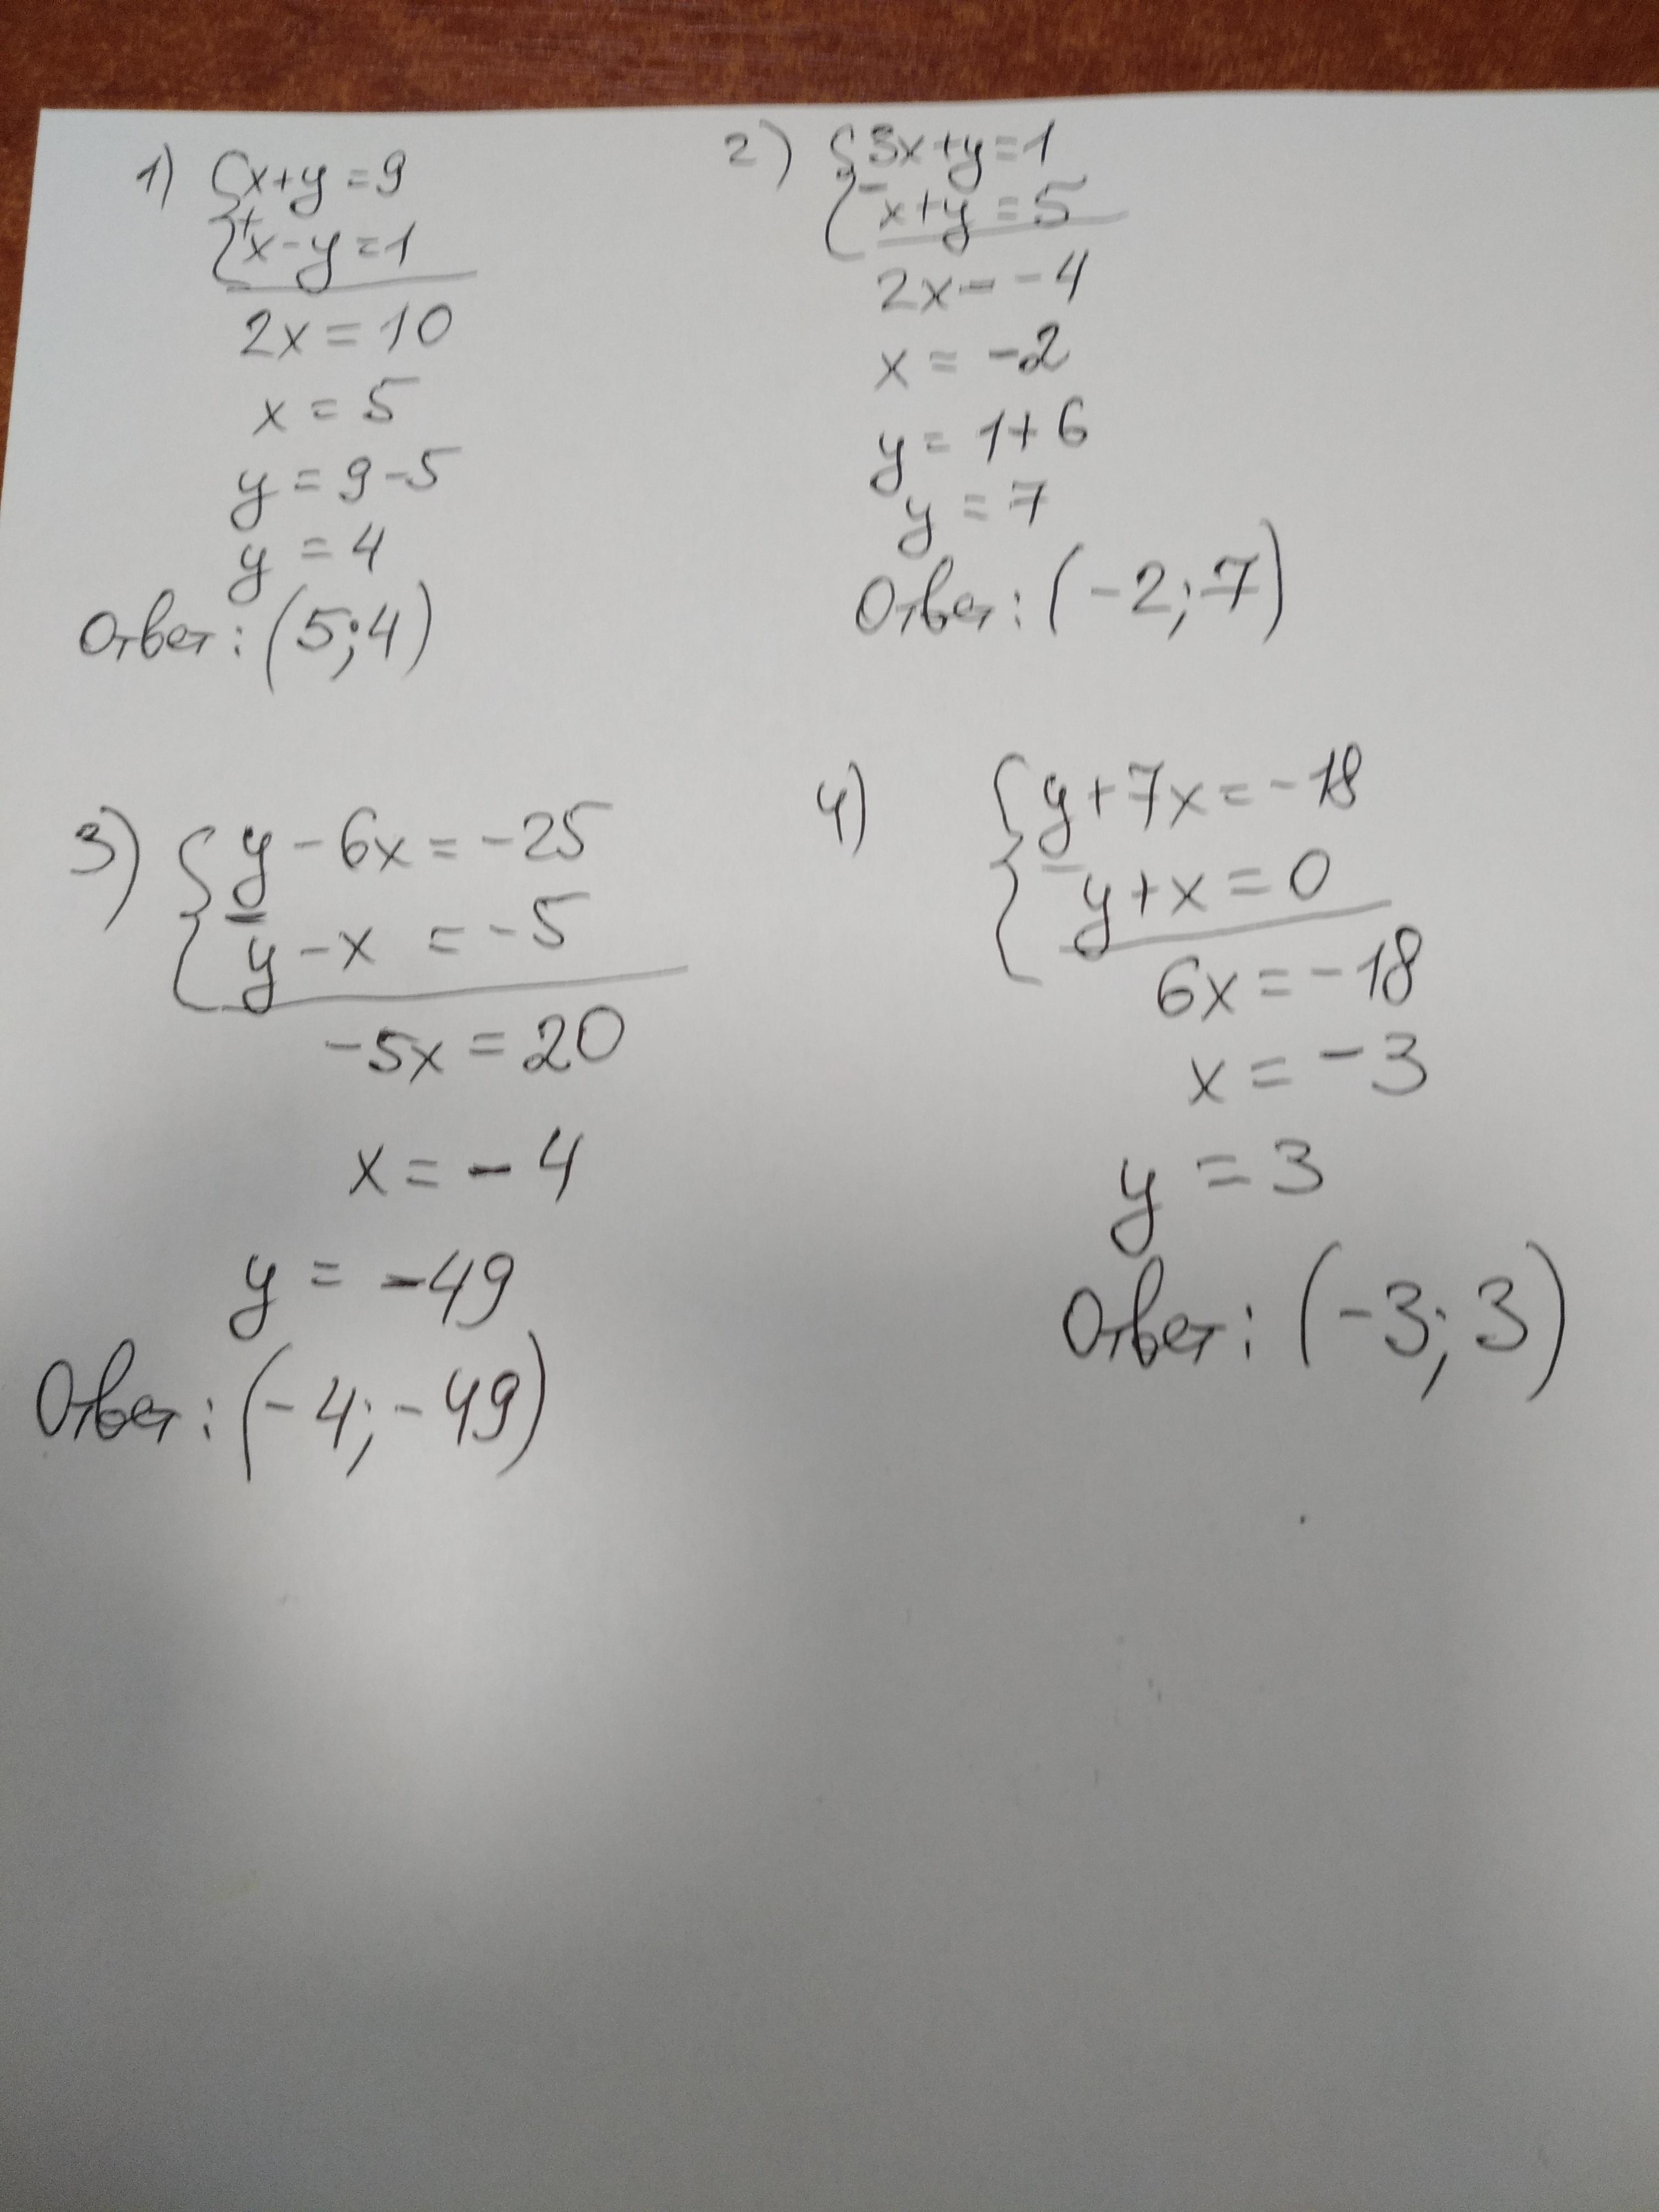 1) { x+y=9
+ x-y=1
2x=10
x=5
y=9-5
y=4
Ответ: (5;4)
2) { 3x+y=1
- x+y=5
2x=-4
x=-2
y=1+6
y=7
Ответ: (-2;7)
3) { y-6x=-25
- y-x=-5
-5x=20
x=-4
y=-49
Ответ: (-4;-49)
4) { y+7x=-18
- y+x=0
6x=-18
x=-3
y=3
Ответ: (-3;3)